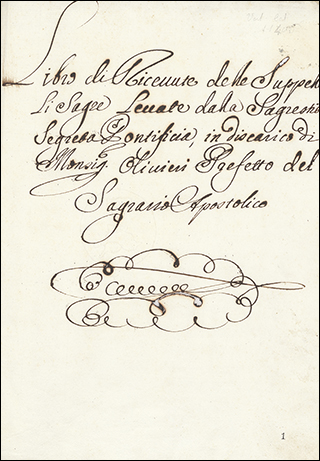 Libro di Riceuute delle Suppell
li Sagre Leuate dalla Sagrestia
Segreta Pontificia, in discarico di
Monsig. Oliuieri Prefetto del
Sagrario Apostolico
1